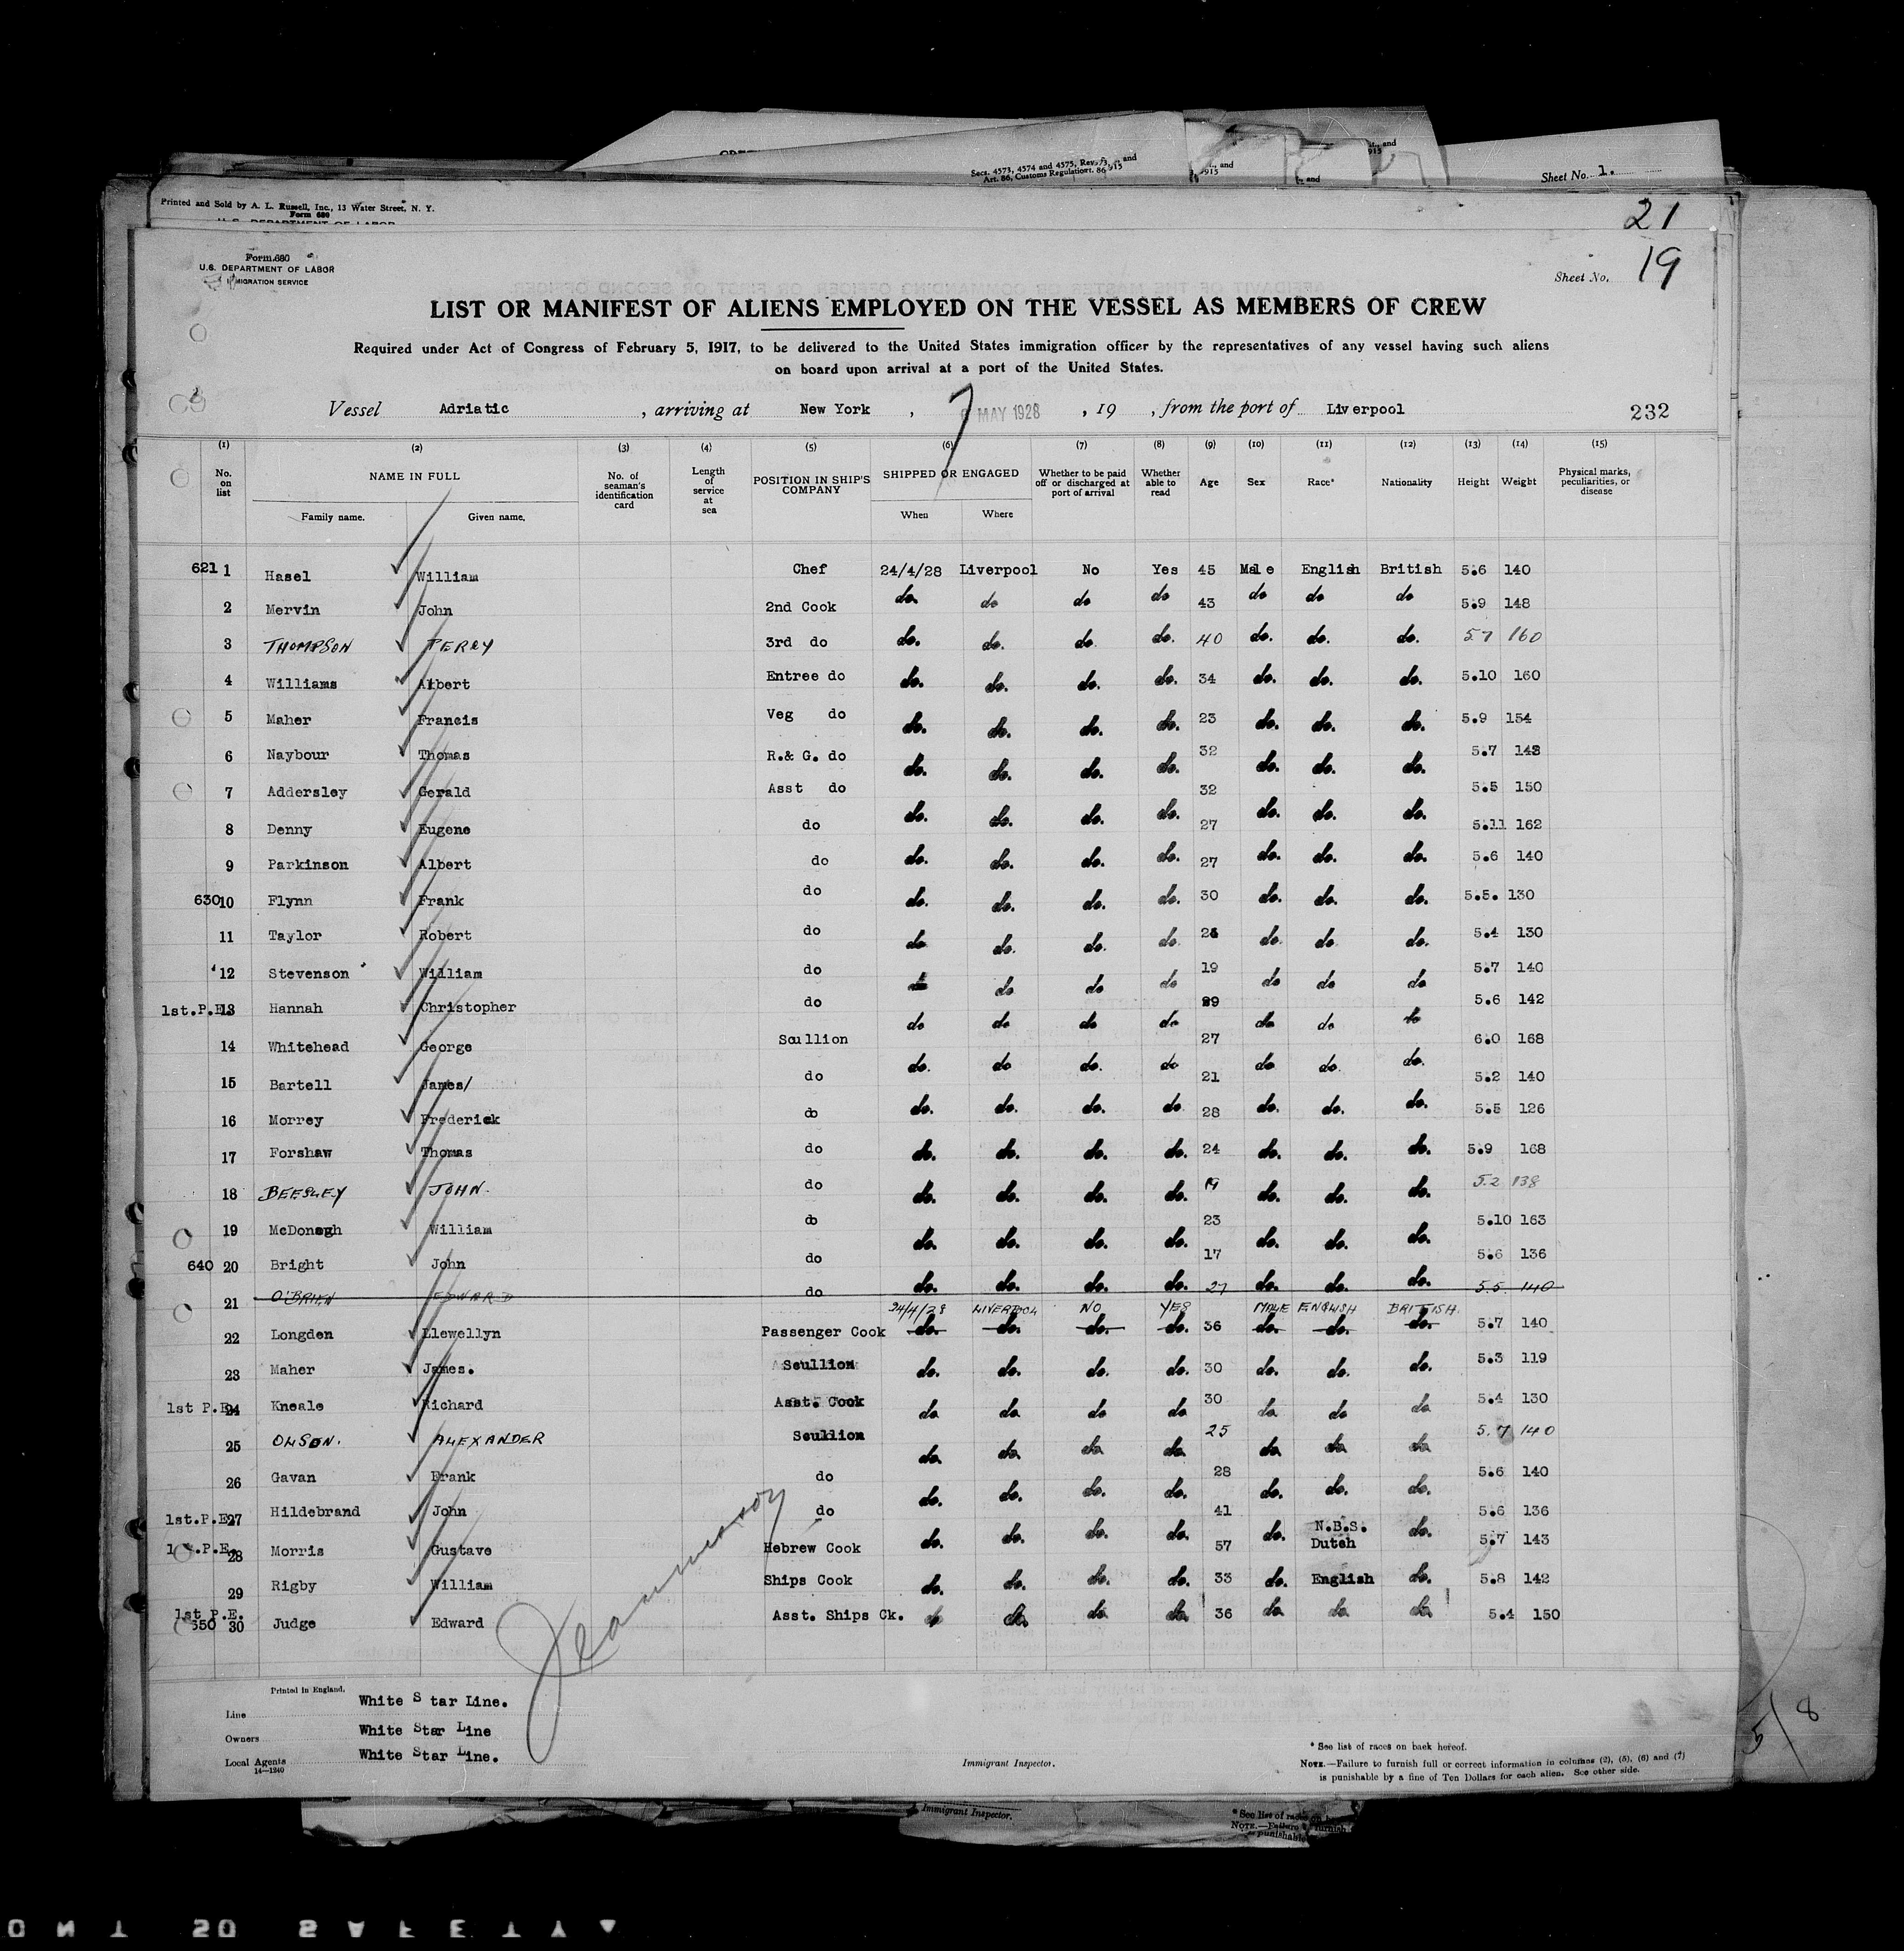 Secs. 4573, 4574 and 4575, Rev.
Art. 86, Customs Regulation
Sheet No. 1.
Printed and Sold by A. L. Russell, Inc., 13 Water Street, N. Y.
Form 680
U.S. DEPARTMENT OF LABOR
21
Form 680
U.S. DEPARTMENT OF LABOR
IMMIGRATION SERVICE
Sheet No. 19
LIST OR MANIFEST OF ALIENS EMPLOYED ON THE VESSEL AS MEMBERS OF CREW
Required under Act of Congress of February 5, 1917, to be delivered to the United States immigration officer by the representatives of any vessel having such aliens
on board upon arrival at a port of the United States.
Vessel Adriatic, arriving at New York, 7 MAY 1928, 19, from the port of Liverpool 232
(1) (2) (3) (4) (5) (6) (7) (8) (9) (10) (11) (12) (13) (14) (15)
No. on list NAME IN FULL No. of seaman's identification card Length of service at sea POSITION IN SHIP'S COMPANY SHIPPED OR ENGAGED Whether to be paid off or discharged at port of arrival Whether able to read Age Sex Race* Nationality Height Weight Physical marks, peculiarities, or disease
Family name. Given name. When Where
621 1 Hasel William Chef 24/4/28 Liverpool No Yes 45 Male English British 5.6 140
2 Mervin John 2nd Cook do. do do do 43 do do do 5.9 148
3 THOMPSON PERCY 3rd do do. do. do. do. 40 do. do. do. 5.7 160
4 Williams Albert Entree do do. do. do. do. 34 do. do. do. 5.10 160
5 Maher Francis Veg do do. do. do. do. 23 do. do. do. 5.9 154
6 Naybour Thomas R.& G. do do. do. do. do. 32 do. do. do. 5.7 143
7 Addersley Gerald Asst do do. do. do. do. 32 do. do. do. 5.5 150
8 Denny Eugene do do. do. do. do. 27 do. do. do. 5.11 162
9 Parkinson Albert do do. do. do. do. 27 do. do. do. 5.6 140
630 10 Flynn Frank do do. do. do. do. 30 do. do. do. 5.5. 130
11 Taylor Robert do do do. do. do. do. do. do. 5.4 130
12 Stevenson William do do do do do 19 do do do 5.7 140
1st.P.E. 13 Hannah Christopher do do do do do 29 do do do 5.6 142
14 Whitehead George Scullion do. do do. do 27 do do. do. 6.0 168
15 Bartell James/ do do. do. do. do. 21 do. do. do. 5.2 140
16 Morrey Frederick do do. do. do. do. 28 do. do. do. 5.5 126
17 Forshaw Thomas do do. do. do. do. 24 do. do. do. 5.9 168
18 BEESLEY JOHN. do do. do. do. do. 19 do. do. do. 5.2 138
19 McDonagh William do do. do. do. do. 23 do. do. do. 5.10 163
640 20 Bright John do do. do. do. do. 17 do. do. do. 5.6 136
21 O'BRIEN EDWARD do 27 5.5 140
24/4/28 LIVERPOOL NO YES MALE ENGLISH BRITISH.
22 Longden Llewellyn Passenger Cook do. do. do. do. 36 do. do. do. 5.7 140
23 Maher James. Scullion do. do. do. do. 30 do. do. do. 5.3 119
1st P.E. 24 Kneale Richard Asst. Cook do do do do 30 do do do 5.4 130
25 OLSON. ALEXANDER Scullion do. do. do. do. 25 do. do. do. 5.7 140
26 Gavan Frank do do. do. do. do. 28 do. do. do. 5.6 140
1st.P.E. 27 Hildebrand John do do. do. do. do. 41 do. N.B.S. do. 5.6 136
1st.P.E. 28 Morris Gustave Hebrew Cook 57 Dutch 5.7 143
29 Rigby William Ships Cook do. do. do. do. 33 do. English do. 5.8 142
1st P.E. 650 30 Judge Edward Asst. Ships Ck. do do. do do 36 do do do 5.4 150
Printed in England.
Line White Star Line.
Owners White Star Line
Local Agents White Star Line.
14—1240
Immigrant Inspector.
* See list of races on back hereof.
NOTE.—Failure to furnish full or correct information in columns (2), (5), (6) and (7)
is punishable by a fine of Ten Dollars for each alien. See other side.
5/8
Immigrant Inspector.
* See list of races
NOTE.—Failure
punishable
SAFETY